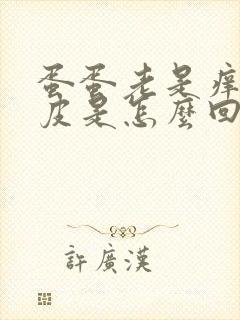 蛋蛋老是痒
皮是怎麼回
許廣漢